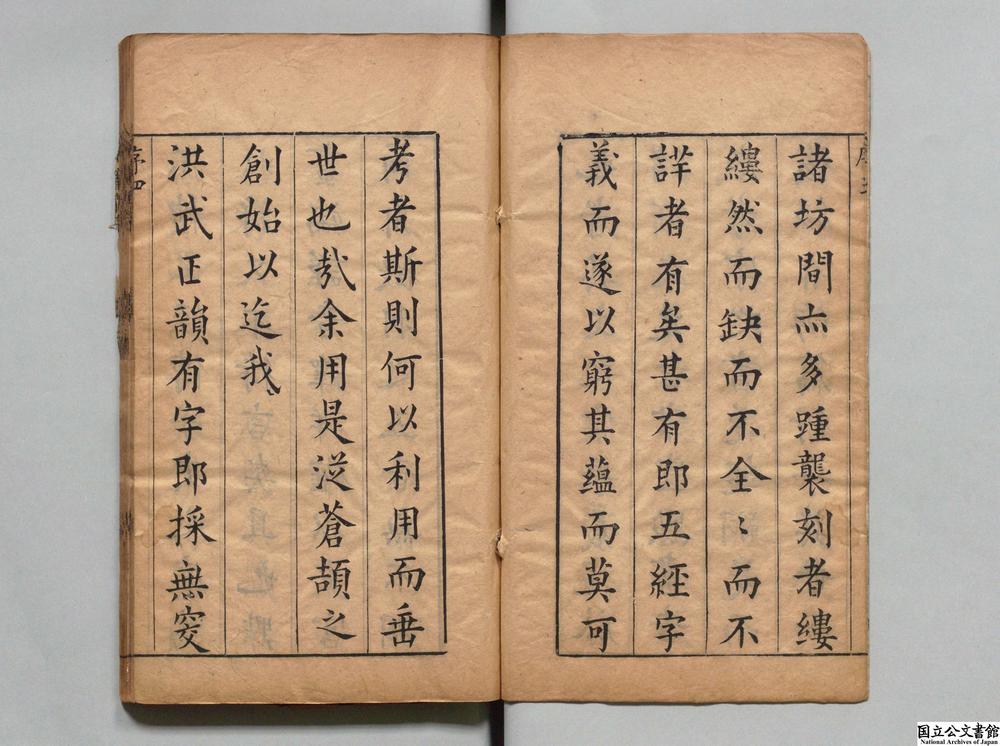 諸坊間亦多踵襲刻者縷
縷然而缺而不全〻而不
詳者有矣甚有即五經字
義而遂以窮其蘊而莫可
考者斯則何以利用而垂
世也哉余用是從蒼頡之
創始以迄我
洪武正韻有字即採無
序四
国立公文書館
National Archives of Japan